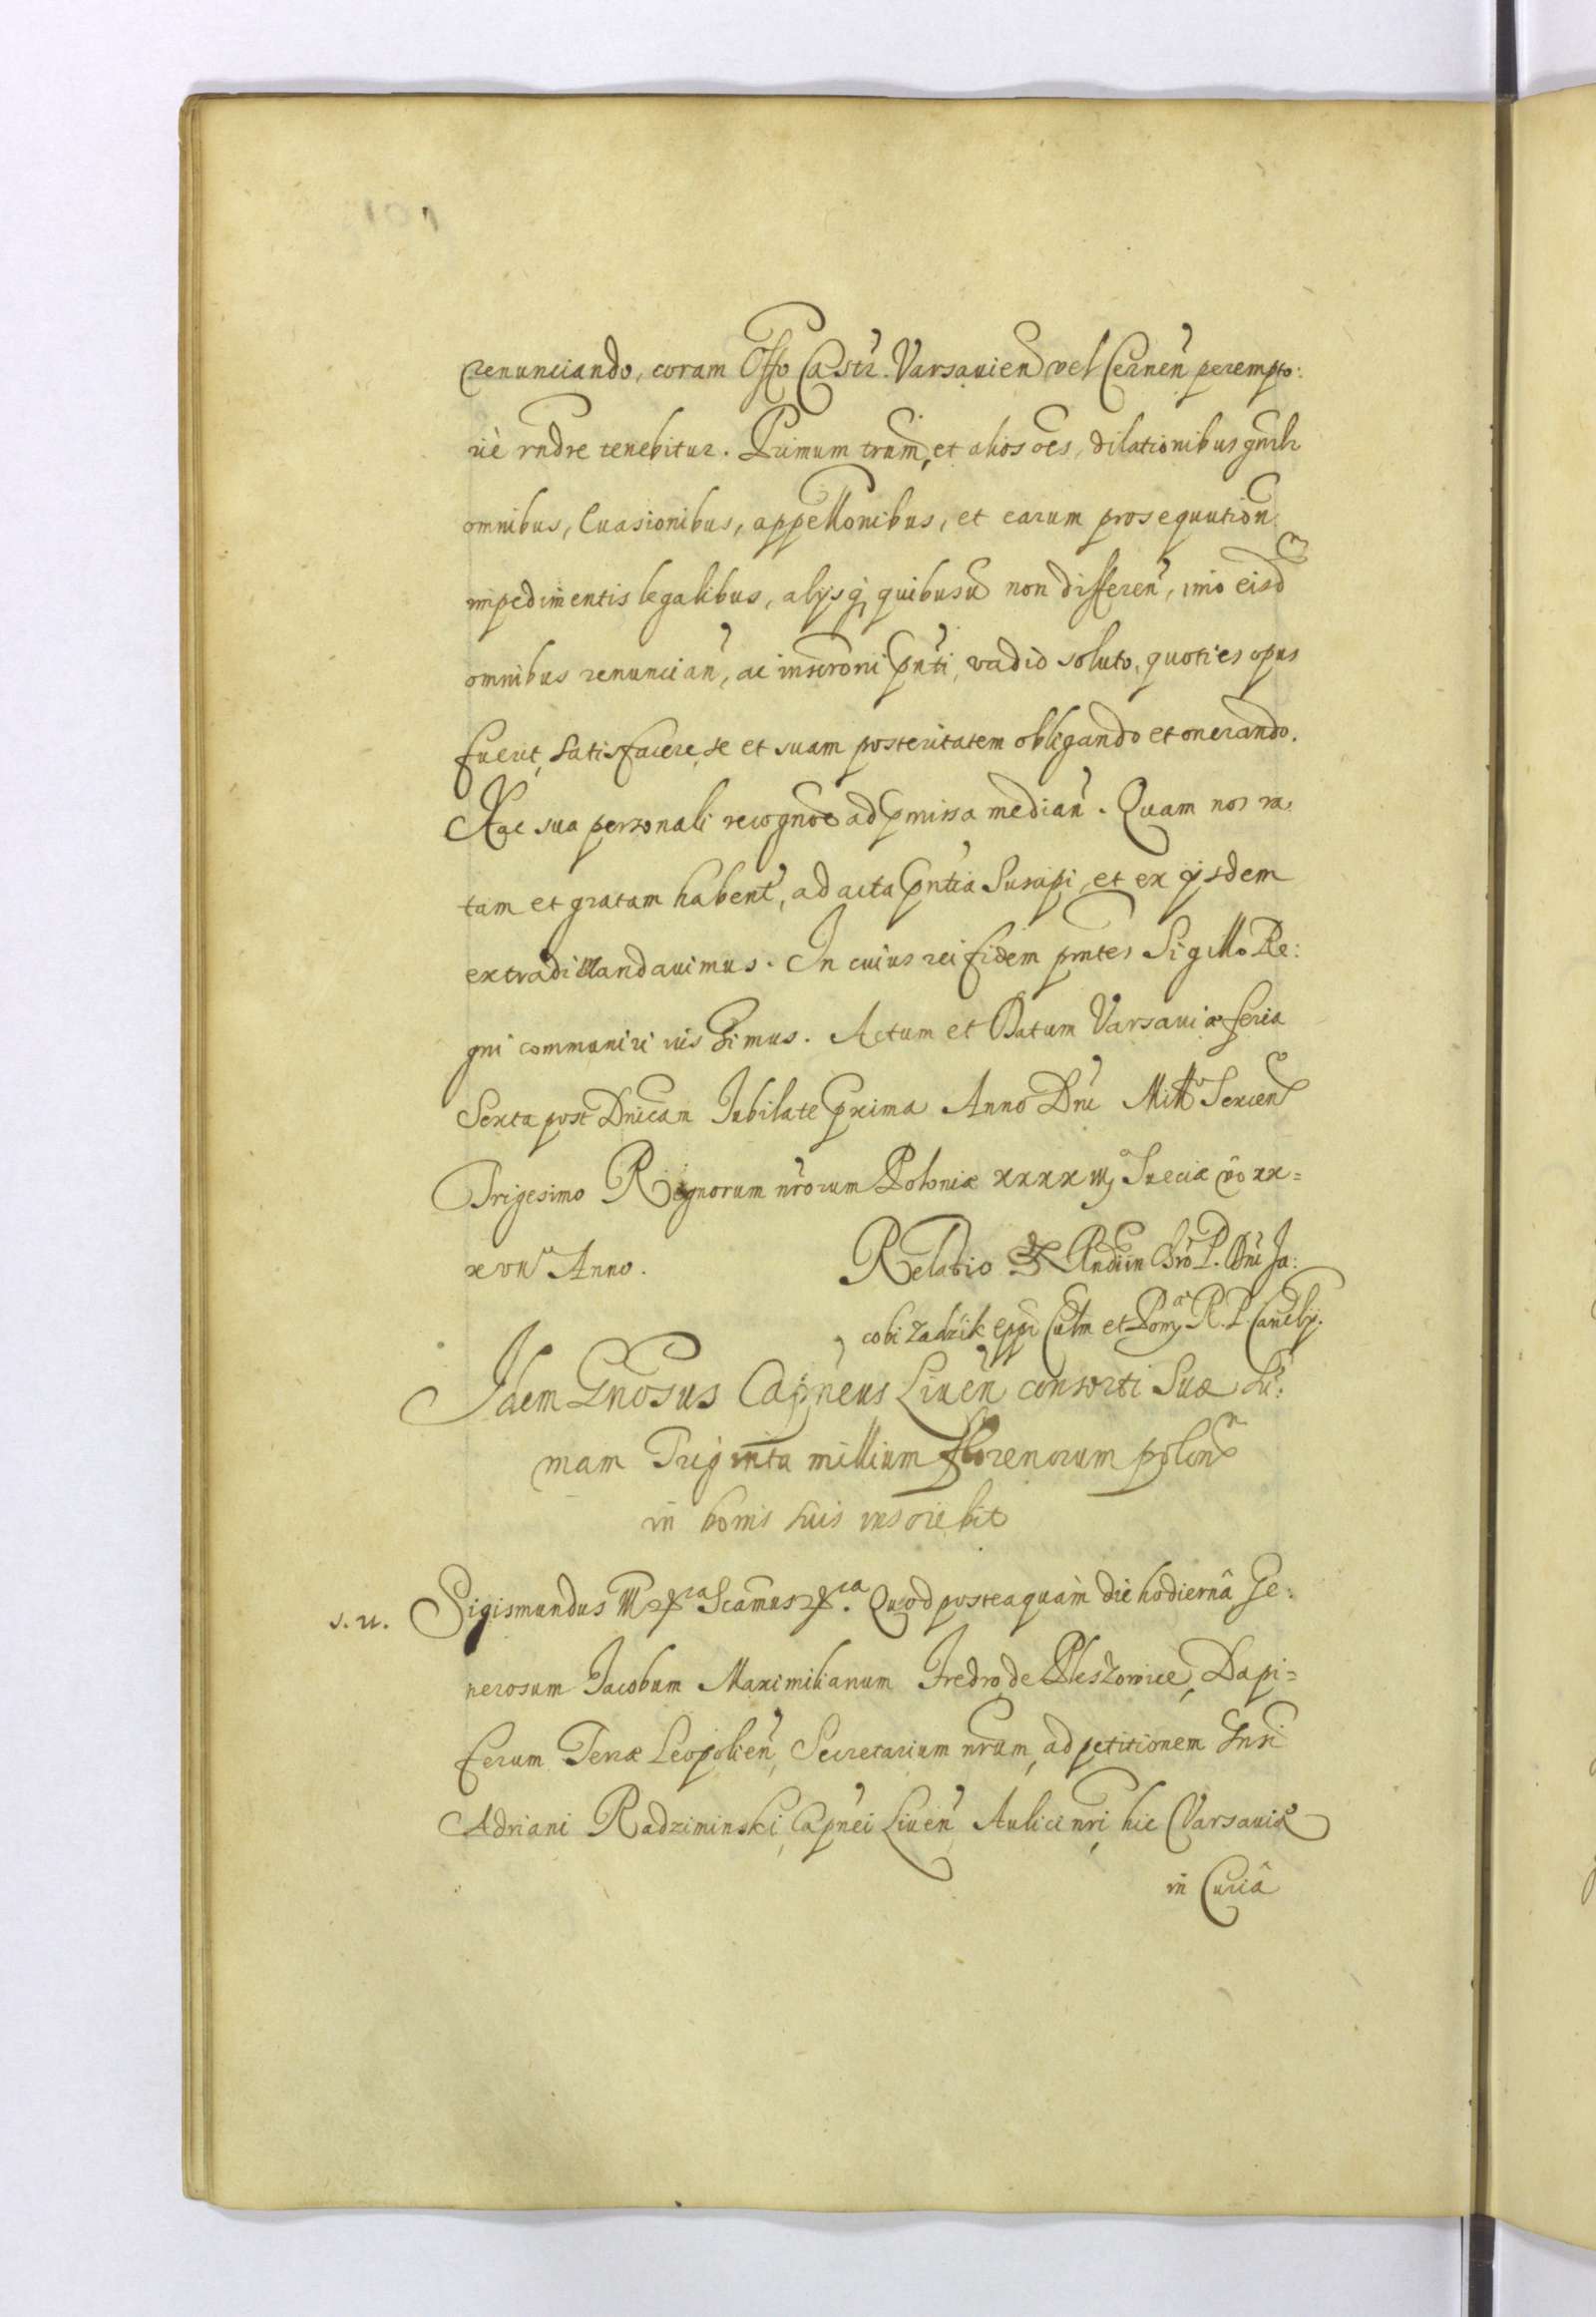 renunciando, coram Offo Castr. Varsauien vel Cernen perempto:
riè rndre tenebitur. Primum trnm, et alios oēs, dilationibus gnrlr
omnibus, Euasionibus, appellonibus, et earum prosequution
impedimentis legalibus, alijsq quibusuis non differen, imò eisd
omnibus renuncian, ac inscrōni pnti, vadio soluto, quoties opus
fuerit, satisfacere, se et suam posteritatem obligando et onerando.
Hac sua personali recognōe ad pmissa median. Quam nos ra,
tam et gratam habent, ad acta pntia Suscipi, et ex ijsdem
extradi Mandauimus. In cuius rei fidem pntes Sigillo Re:
gni communiri iussimus. Actum et Datum Varsauiæ feria
Sexta post Dnicam Iubilate proxima Anno Dni Millo Sexcen
Trigesimo Regnorum nrorum Poloniæ xxxxiij Sueciæ vo xx=
xvii Anno.
Relatio Rndi in Chro P. Dni Ja:
cobi Zadzik eppi Culm et Pom R. P. Cancellrij.
Idem Gnosus Capneus Liuen consorti Suæ Su:
mam Triginta millium florenorum polon
in bonis suis inscribit
s. n. Sigismundus III &ca Scamus &ca. Quod posteaquàm die hodiernâ Ge:
nerosum Jacobum Maximilianum Fredro de Pleszowice, Dapi=
ferum Terræ Leopolien, Secretarium nrum, ad petitionem Gnsi
Adriani Radziminski, Capnei Liuen Aulici nri, hic Varsauiæ
in Curiâ